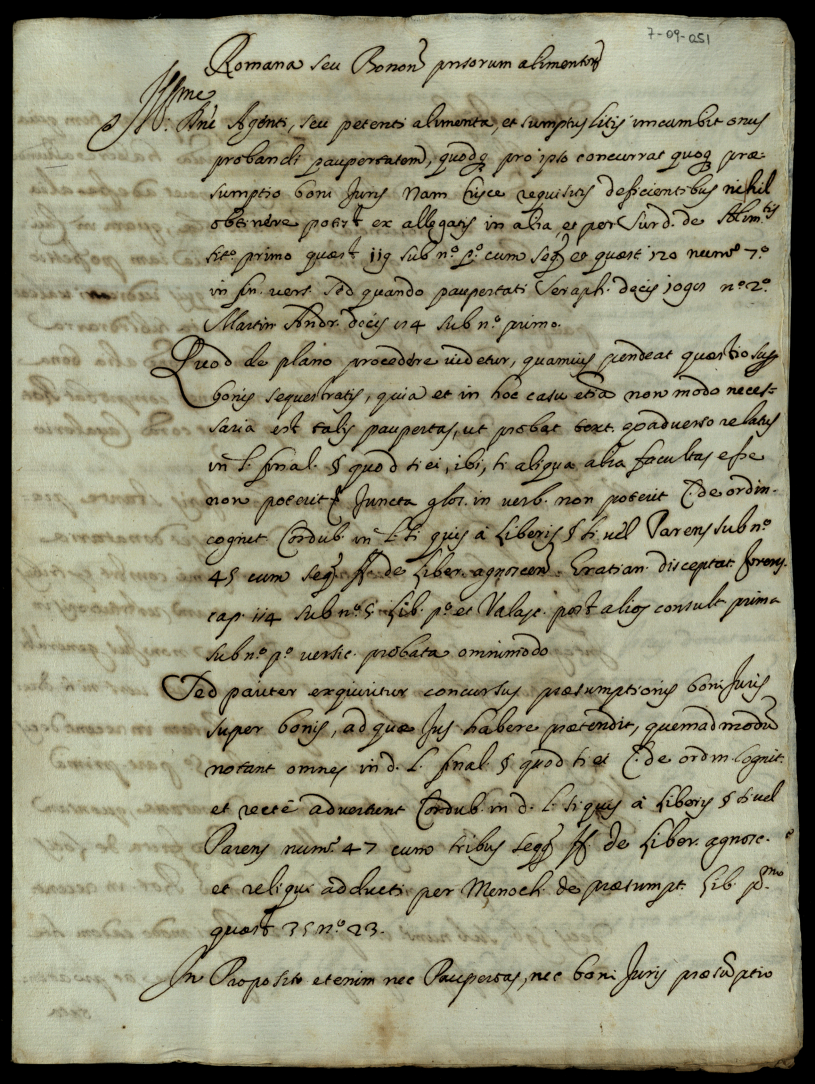 7-09-051
Romana seu Bonon. pnsorum alimentor
Illme
Dne Agenti, seu petenti alimenta, et sumptus litis incumbit onus
probandi paupertatem, quodq; pro ipso concurrat quoq; præ-
sumptio boni Juris nam hisce requisitis deficientibus nihil
obtinere potest ex allegatis in alia, et per Surd. de Alim.tis
tit.o primo quæst. 119 sub n.o p.o cum seqq. et quæst. 120 num.o 7.o
in fin. vers. sed quando paupertati Seraph. decis. n.o 2.o
Martin Andr. decis. 114 sub n.o primo.
Quod de plano procedere videtur, quamuis pendeat quæstio sup.
bonis sequestratis, quia et in hoc casu etiã non modo neces-
saria est talis paupertas, ut probat text. ex adverso relatus
in l. final. § quod si ei, ibi, si aliqua alia facultas esse
non poterit Juncta glos. in verb. non poterit C. de ordin.
cognit. Cordub. in l. si quis à Liberis § si vel Parens sub n.o
45 cum seqq. ff. de Liber. agnoscen. Gratian. disceptat. forens.
cap. 114 sub n.o 5 Lib. p.o et Valasc. post alios consult. prima
sub n.o p.o versic. probata omnimodo
Sed pariter exquiritur concursus præsumptionis boni Juris
super bonis, ad quæ Jus habere prætendit, quemadmodũ
notant omnes in d. l. final. § quod si ei C. de ordin. Cognit.
et rectè advertunt Cordub. in d. l. si quis à Liberis § si vel
Parens num.o 47 cum tribus seqq. ff. de Liber. agnosc.
et reliqui adducti per Menoch. de præsumpt. Lib. p.mo
quæst. 35 n.o 23.
In Proposito etenim nec Paupertas, nec boni Juris præsũptio